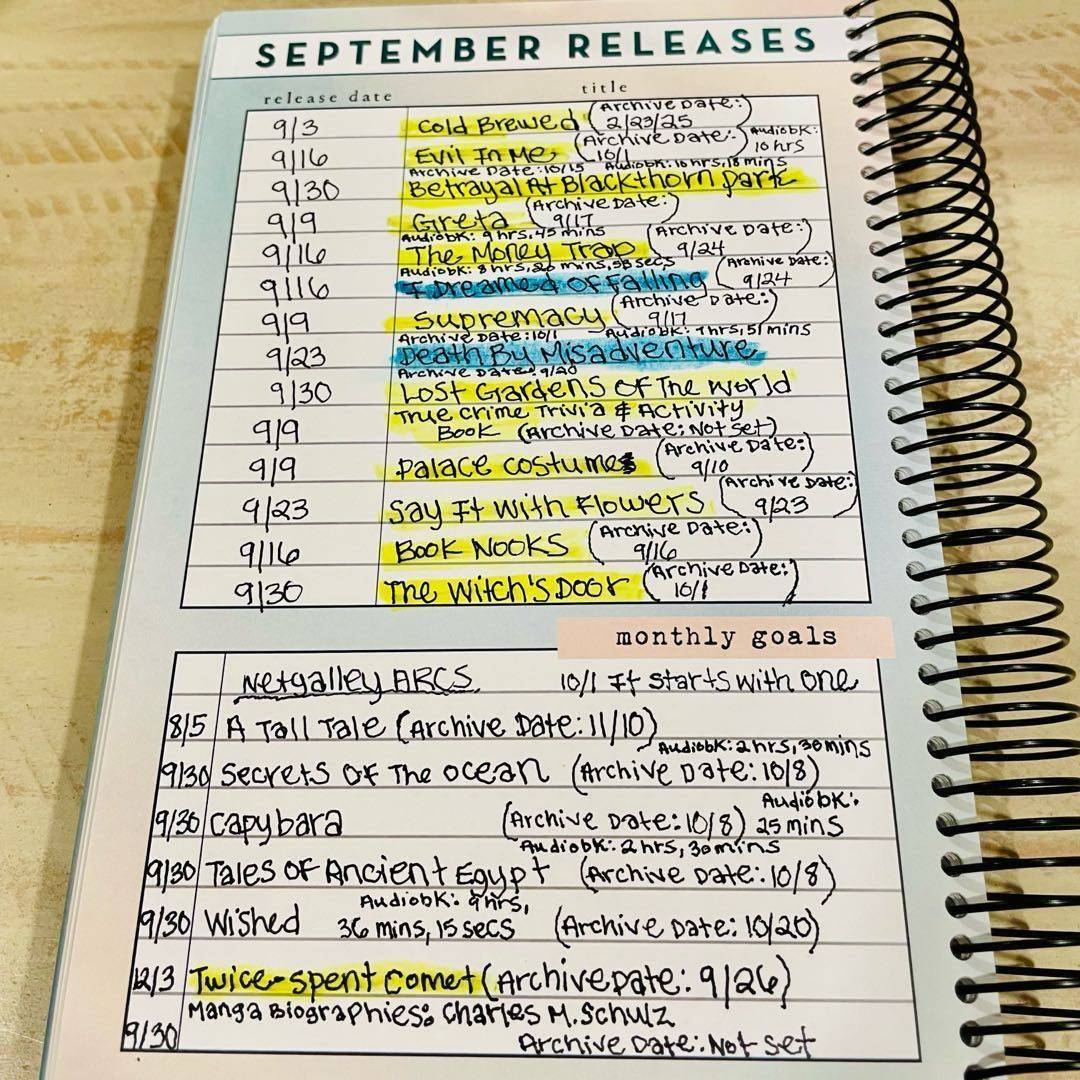 SEPTEMBER RELEASES
release date title
9/3 Cold Brewed (Archive Date: 2/23/25
9/16 Evil In Me (Archive Date: 10/1) Audiobk: 10 hrs
Archive Date: 10/15 Audiobk: 10 hrs, 18 mins
9/30 Betrayal At Blackthorn Park
9/9 Greta (Archive Date: 9/17)
Audiobk: 9 hrs, 45 mins
9/16 The Money Trap (Archive Date: 9/24)
Audiobk: 8 hrs, mins, secs
9/16 I Dreamed Of Falling (Archive Date: 9/24)
9/9 Supremacy (Archive Date: 9/17)
Archive Date: 10/1 Audiobk: 7hrs, 51 mins
9/23 Death By Misadventure
Archive Date: 9/20
9/30 Lost Gardens Of The World
True Crime Trivia & Activity
9/9 Book (Archive Date: Not Set)
9/9 Palace Costumes (Archive Date: 9/10)
9/23 Say It With Flowers (Archive Date: 9/23)
9/16 Book Nooks (Archive Date: 9/16)
9/30 The Witch's Door (Archive Date: 10/1)
monthly goals
Netgalley ARCS 10/1 It Starts With One
8/5 A Tall Tale (Archive Date: 11/10)
Audiobk: 2 hrs, 30 mins
9/30 Secrets Of The Ocean (Archive Date: 10/8)
Audiobk:
9/30 Capybara (Archive Date: 10/8) 25 mins
Audiobk: 2 hrs, 30 mins
9/30 Tales Of Ancient Egypt (Archive Date: 10/8)
Audiobk: 9 hrs,
9/30 Wished 36 mins, 15 secs (Archive Date: 10/20)
12/3 Twice-spent Comet (Archive Date: 9/26)
Manga Biographies: Charles M. Schulz
9/30 Archive Date: Not Set